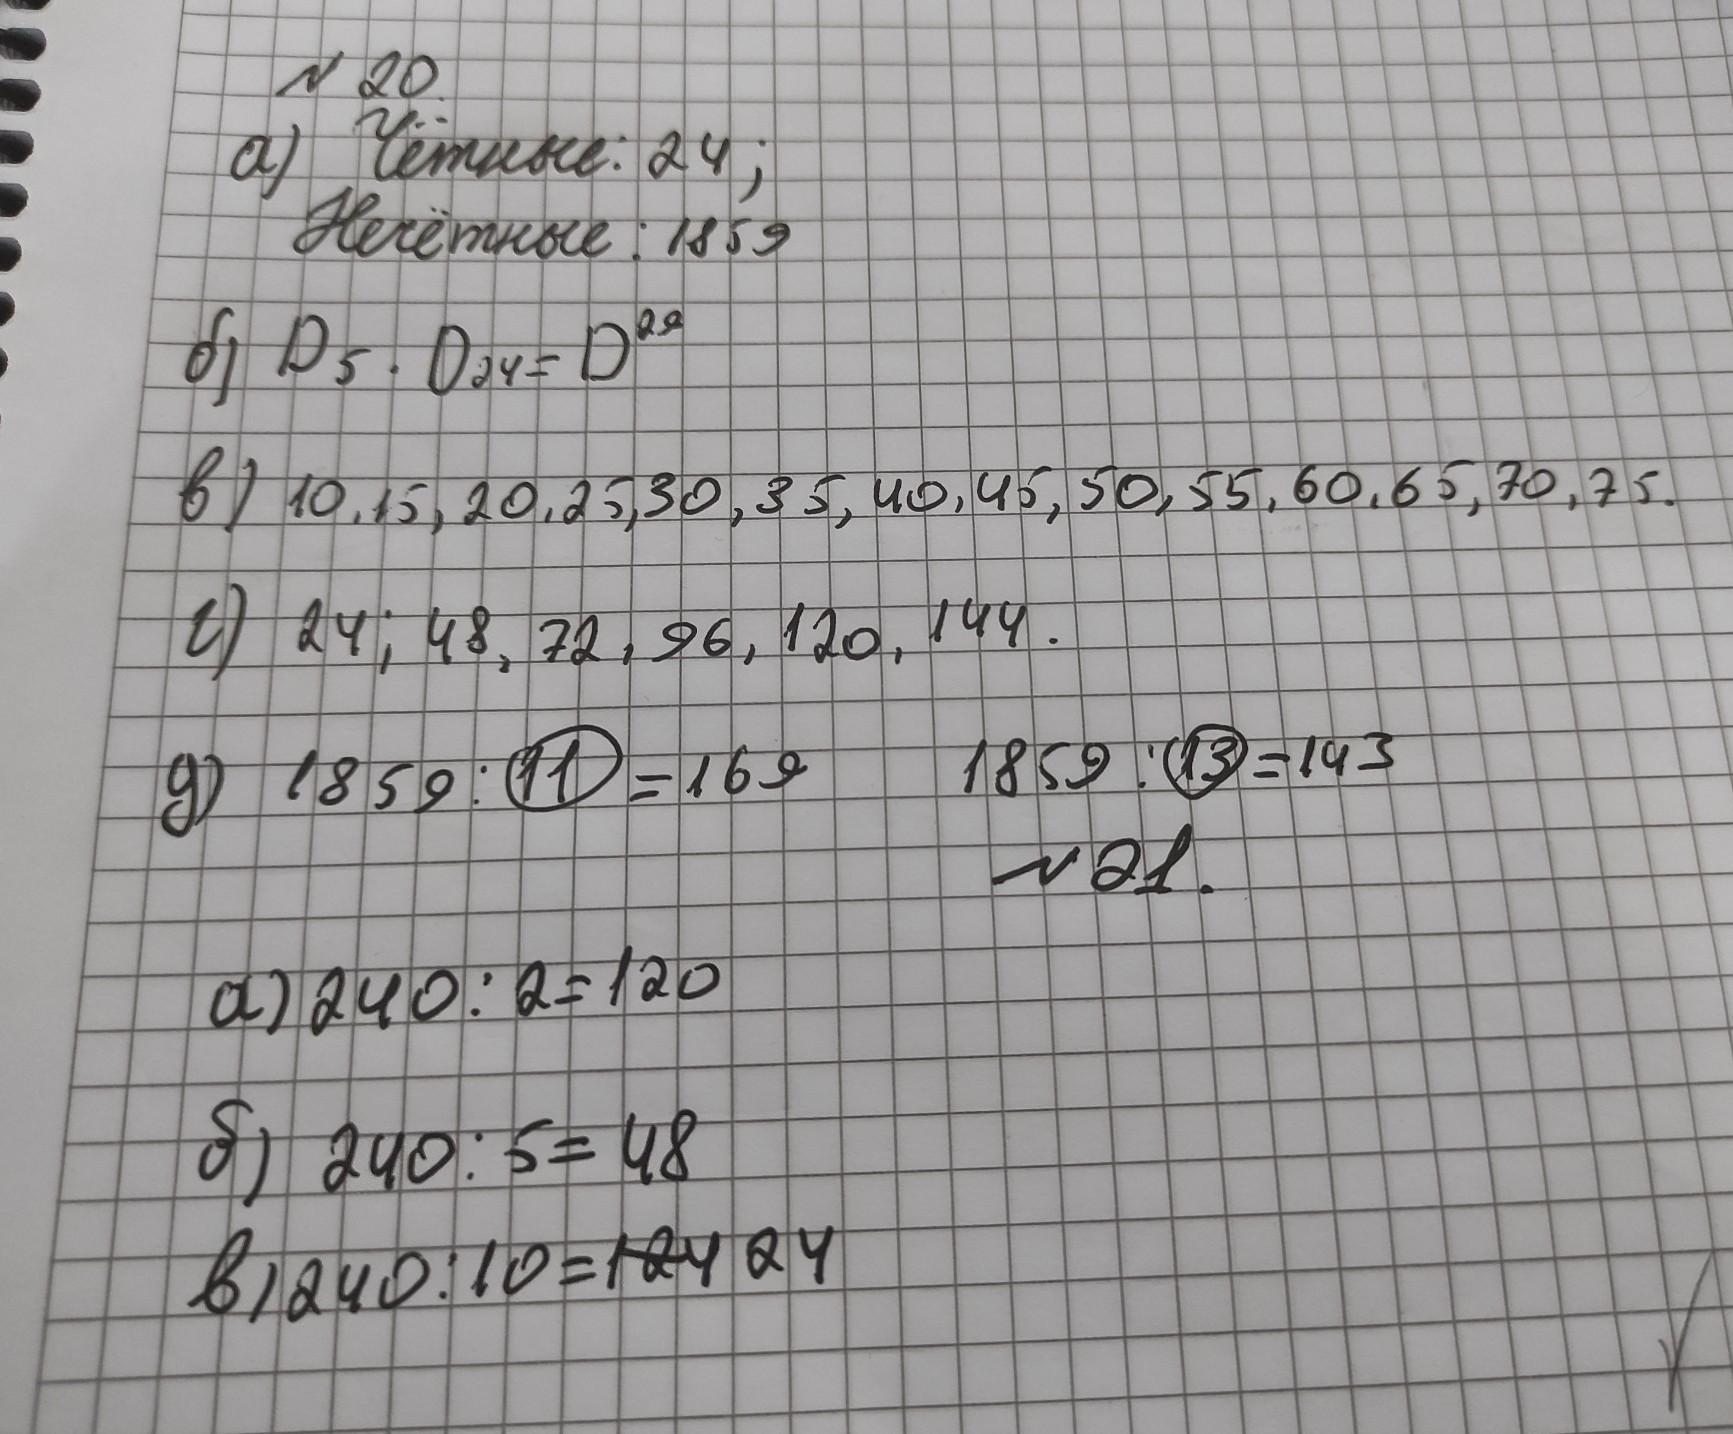 № 20.
а) Чётные: 24;
Нечётные: 1859
б) D5 · D24 = D²⁹
в) 10, 15, 20, 25, 30, 35, 40, 45, 50, 55, 60, 65, 70, 75.
г) 24; 48, 72, 96, 120, 144.
д) 1859 : 11 = 169 1859 : 13 = 143
№ 21.
а) 240 : 2 = 120
б) 240 : 5 = 48
в) 240 : 10 = 124 24